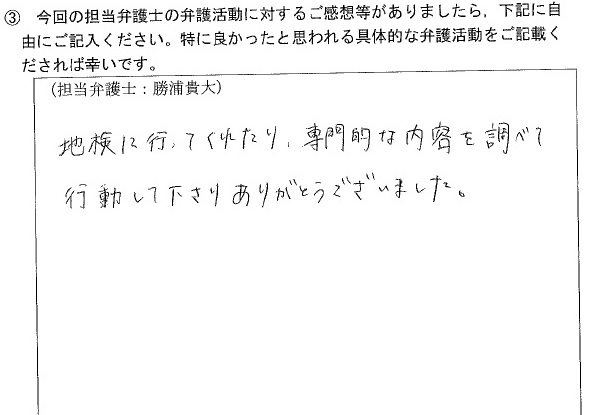 ③ 今回の担当弁護士の弁護活動に対するご感想等がありましたら，下記に自
由にご記入ください。特に良かったと思われる具体的な弁護活動をご記載く
だされば幸いです。
（担当弁護士：勝浦貴大）
地検に行ってくれたり、専門的な内容を調べて
行動して下さりありがとうございました。